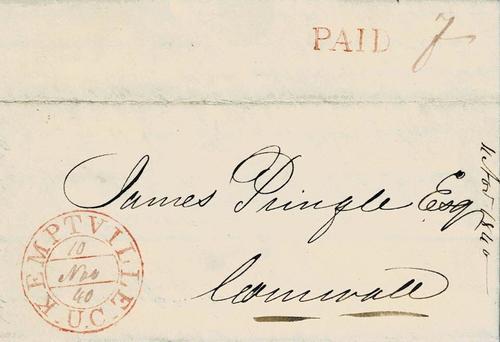 PAID 7
James Pringle Esq
Cornwall
KEMPTVILLE U.C.
10
Nov
40
Nov 1840